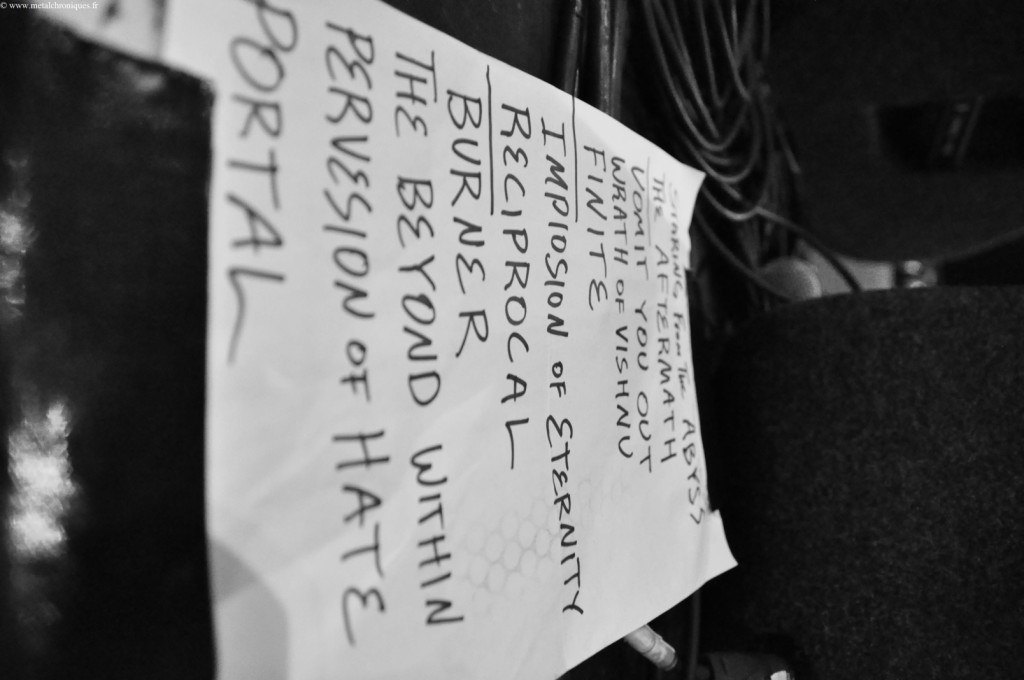 © www.metalchroniques.fr
STARING FROM THE ABYSS
THE AFTERMATH
VOMIT YOU OUT
WRATH OF VISHNU
FINITE
IMPLOSION OF ETERNITY
RECIPROCAL
BURNER
THE BEYOND WITHIN
PERVESION OF HATE
PORTAL